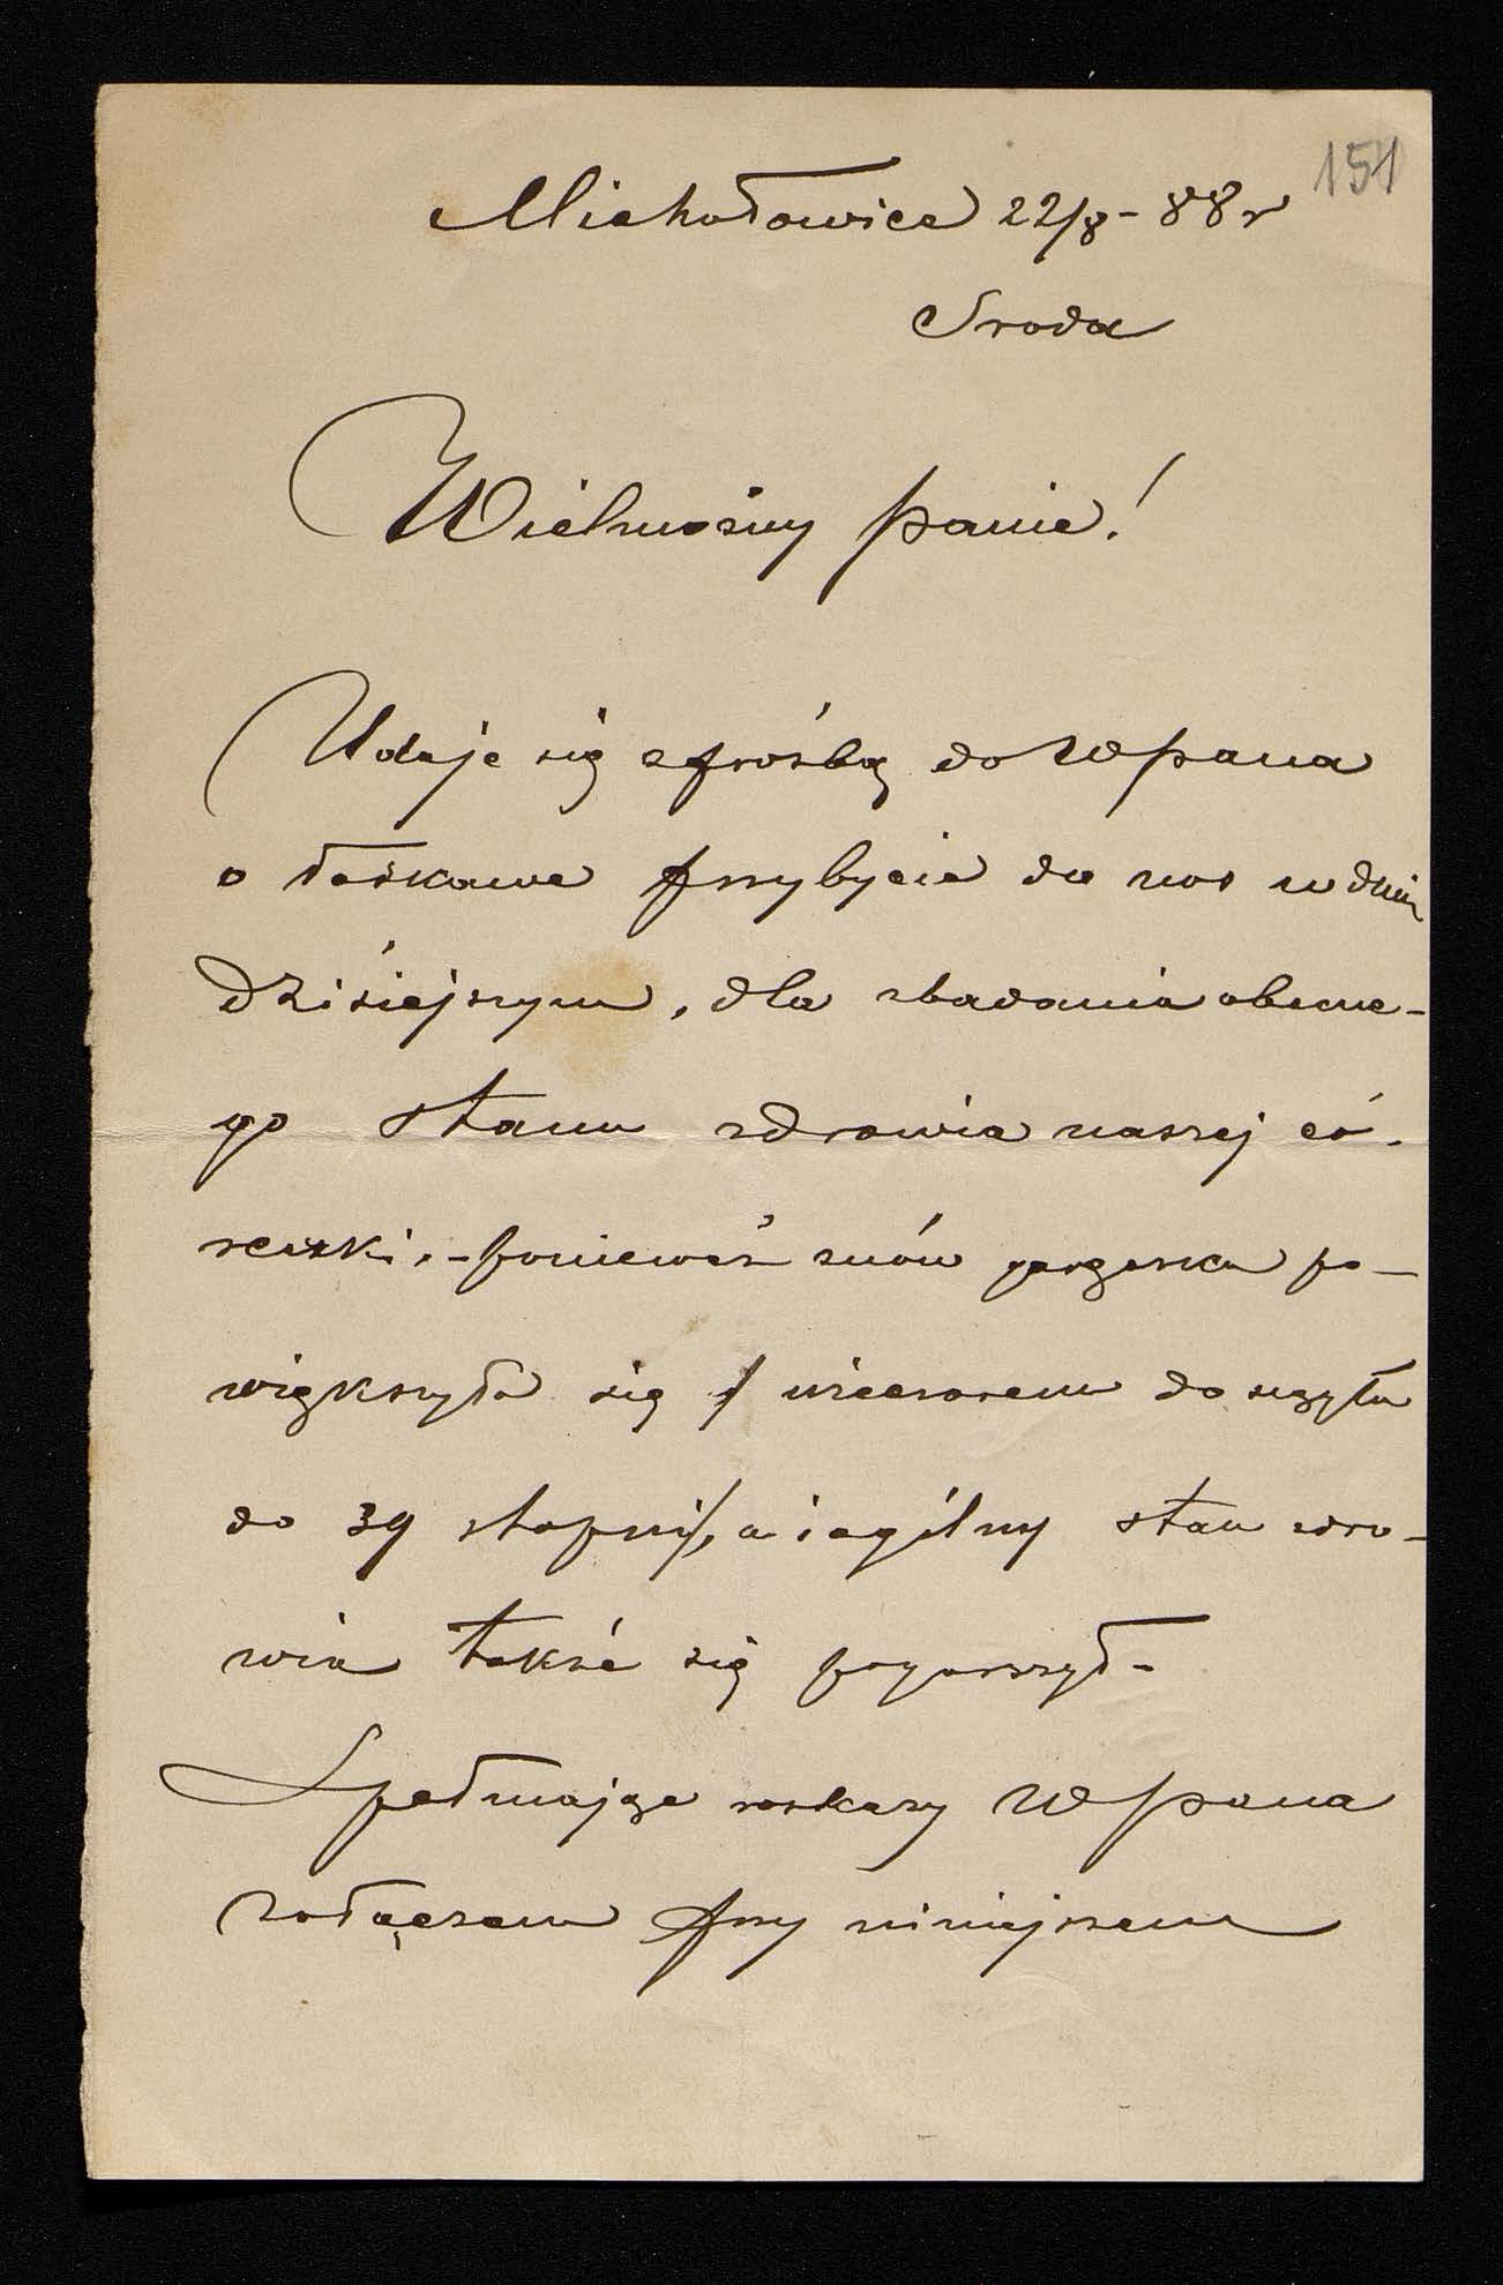 151
Michałowice 22/8 - 88 r
Sroda
Wielmożny Panie!
Udaje się z prośbą do WPana
o łaskawe przybycie do nas w dniu
dzisiejszym, dla zbadania obecne-
go stanu zdrowia naszej có-
reczki, - ponieważ znów gorączka po-
większyła się / wieczorem doszła
do 39 stopni/, a i ogólny stan zdro-
wia także się pogorszył -
Spełniając rozkazy WPana
załączam przy niniejszem